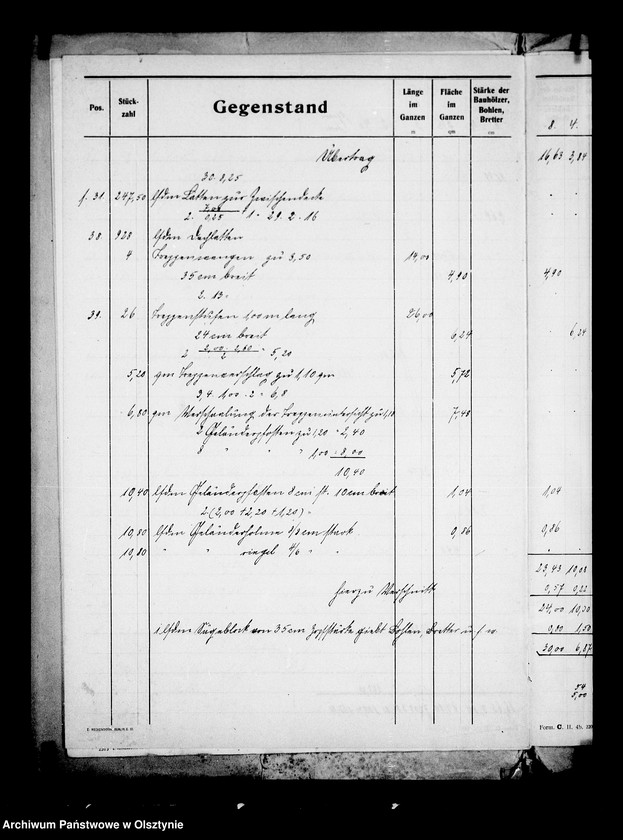 Pos. Stückzahl Gegenstand Länge im Ganzen m Fläche im Ganzen qm Stärke der Bauhölzer, Bohlen, Bretter cm 8. 4.
Übertrag 16,63 3,84
30. 8,25
f. 31. 247,50 lfdm Latten zur Zwischendecke
38. 928 lfdm Dachlatten
4 Treppenwangen zu 3,50 14,00
35 cm breit 4,90 4,90
2. 13.
39. 26 Treppenstufen 1,00 m lang 26,00
24 cm breit 6,24 6,24
5,20
5,20 qm Treppenverschlag zu 1,10 qm 5,72
3,4. 1,00. 2 = 6,8
6,80 qm Verschaalung der Treppenuntersicht zu 1,10 7,48
2 Geländerpfosten zu 1,20 = 2,40
8 " " " 1,00 = 8,00
10,40
10,40 lfdm Geländerpfosten 8 cm st. 10 cm breit 1,04 1,04
2 (2,00 + 2,20 + 1,20) =
10,80 lfdm Geländerholme 8/8 cm stark 0,86 0,86
10,80 " " riegel 4/6 " "
23,43 10,08
0,57 0,22
hierzu Verschnitt
24,00 10,30
1 lfdm Sägeblock von 35 cm Zopfstärke giebt Bohlen, Bretter u. s. w. 0,80 1,50
30,00 6,87
5,00
Form. C. H. 4b.
Archiwum Państwowe w Olsztynie